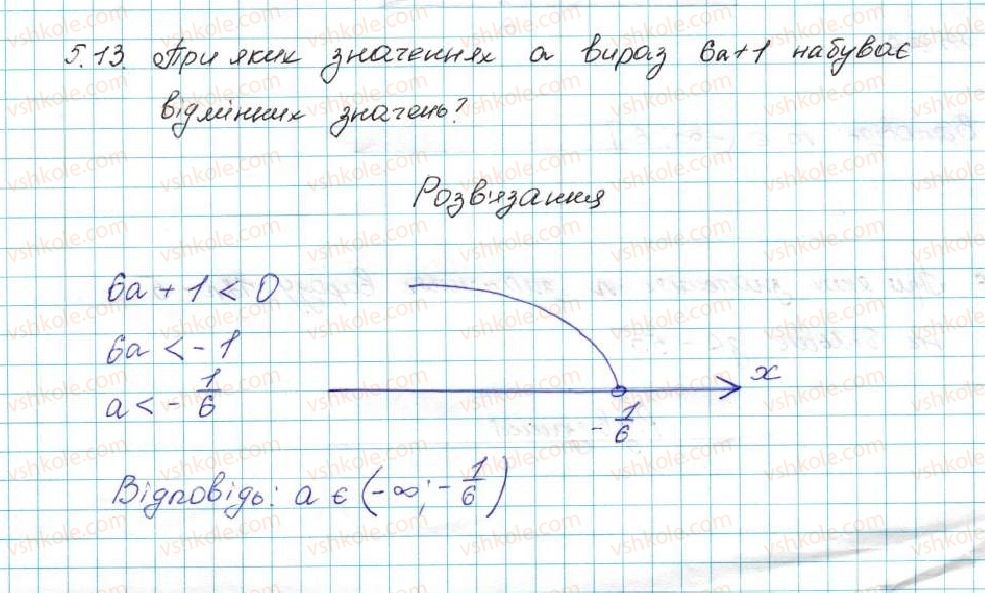 5.13 При яких значеннях a вираз 6a+1 набуває
відмінних значень?
Розв'язання
6a + 1 < 0
6a < - 1
a < - 1/6
x
- 1/6
Відповідь: a ∈ (-∞; - 1/6)
vshkole.com